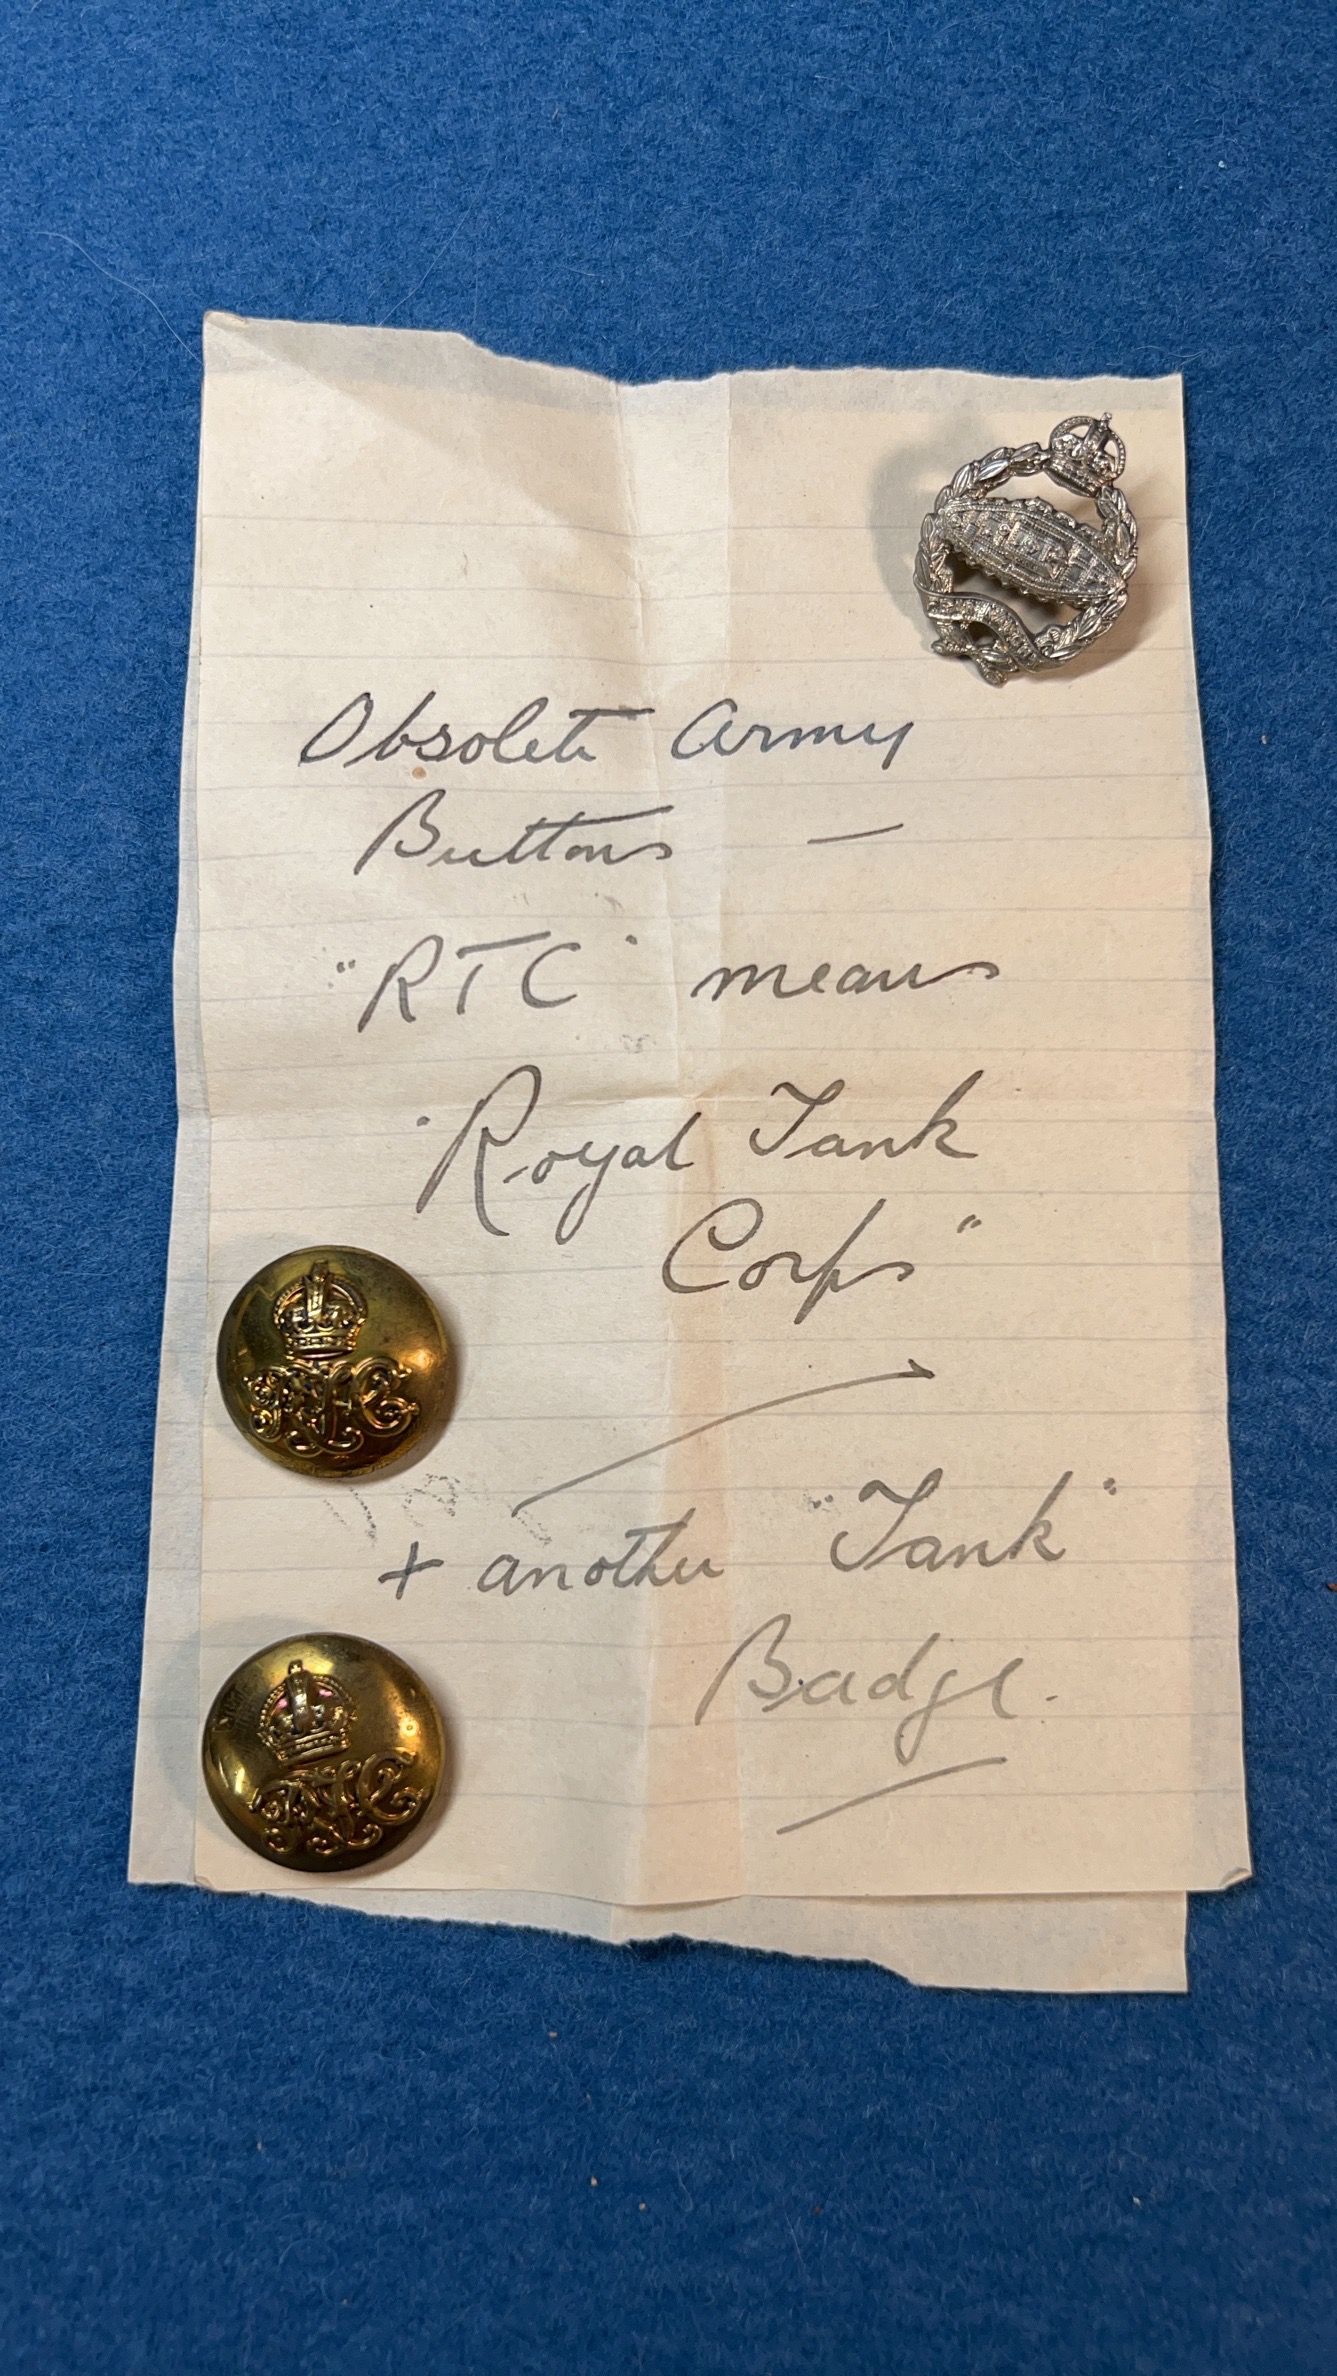 Obsolete Army
Buttons —
"RTC" means
"Royal Tank
Corps"
+ another "Tank"
Badge.
RTC
RTC